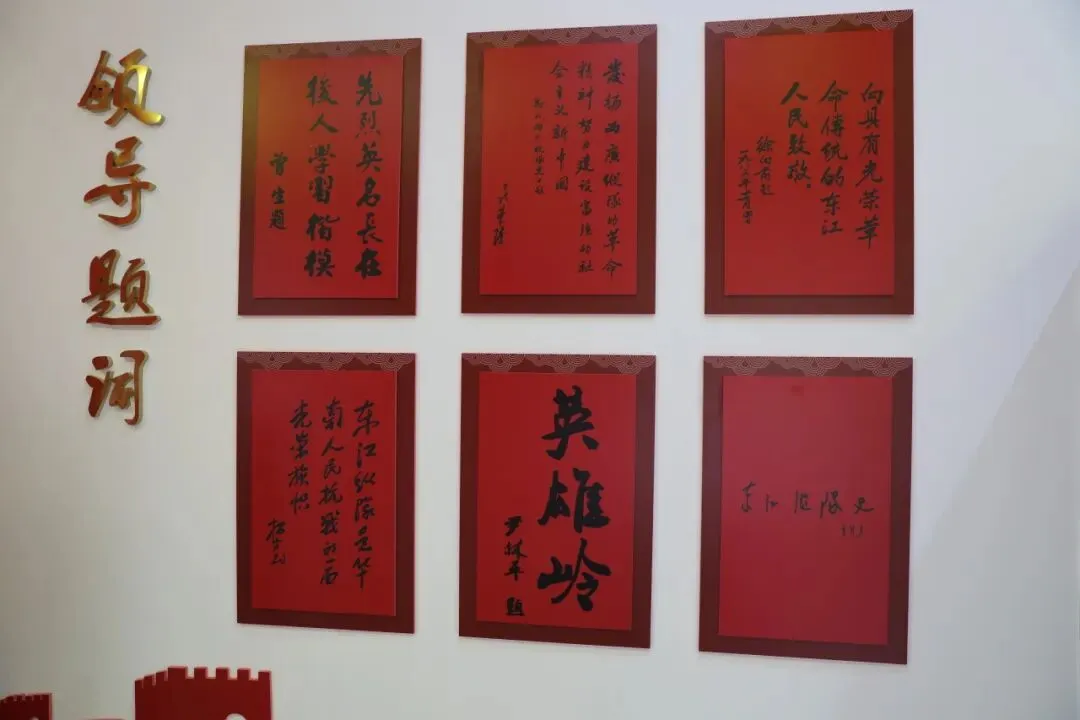 领导题词
先烈英名長在
後人學習楷模
曾生题
发扬两广纵队的革命
精神努力建设富强的社
会主义新中国
向具有光荣革
命傳統的东江
人民致敬。
徐向前题
东江纵隊是华
南人民抗战的一面
光荣旗帜
英雄岭
尹林平题
东江纵隊史